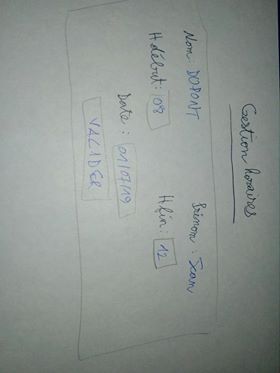 Gestion horaires
Nom: DUPONT Prénom: Jean
H début: 08 H fin: 12
Date: 01/07/19
VALIDER